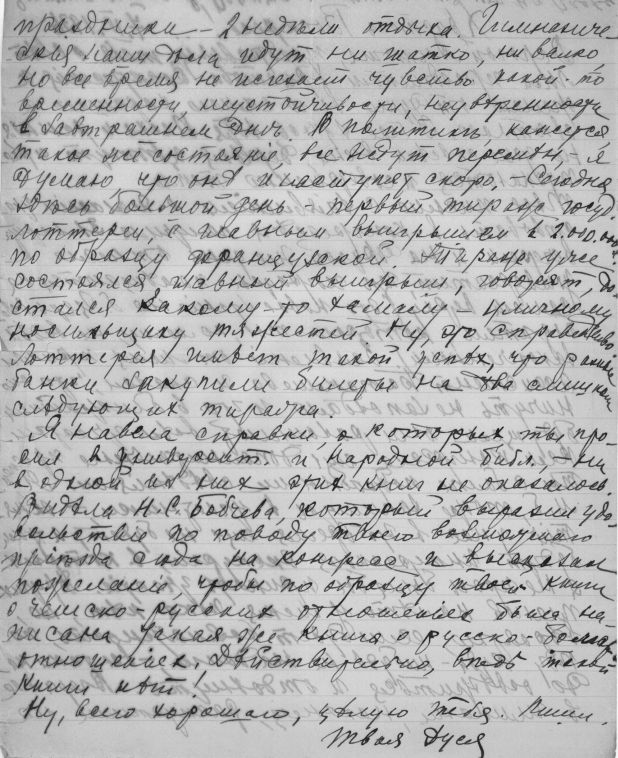 праздники – 2 недѣли отдыха. Гимназиче-
ския наши дѣла идутъ ни шатко, ни валко,
но все время не исчезает чувство какой-то
временности, неустойчивости, неуверенности
в завтрашнем днѣ. В политикѣ, кажется,
такое же состояние, все ждут перемѣн, – я
думаю, что онѣ и наступят скоро. – Сегодня
здѣсь большой день – первый тираж госуд.
лоттереи, с главным выигрышем в 2.000.000
по образцу французской. Тираж уже
состоялся, главный выигрыш, говорят, до-
стался какому-то хамалу – уличному
носильщику тяжестей. Ну, это справедливо
Лоттерея имѣет такой успѣх, что
банки закупили билеты на два
слѣдующих тиража.
Я навела справки, о которых ты про-
сил в университ. и Народной библ., – ни
в одной из них этих книг не оказалось.
Видѣла Н.С. Бобчева, который выразил удо-
вольствие по поводу твоего возможнаго
приѣзда сюда на конгресс и высказал
пожелание, чтобы по образцу твоей книги
о чешско-русских отношениях была на-
писана такая же книга о русско-болгар.
отношениях. Дѣйствительно, вѣдь такой
книги нѣт!
Ну, всего хорошаго, цѣлую тебя. Пиши.
Твоя Дуся